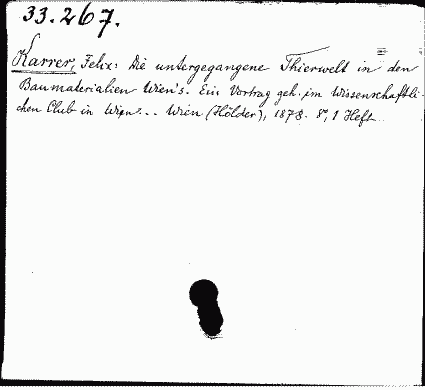 33.267.
Karrer, Felix: Die untergegangene Thierwelt in den
Baumaterialien Wien's. Ein Vortrag geh. im Wissenschaftli-
chen Club in Wien... Wien (Hölder), 1878. 8°, 1 Heft.